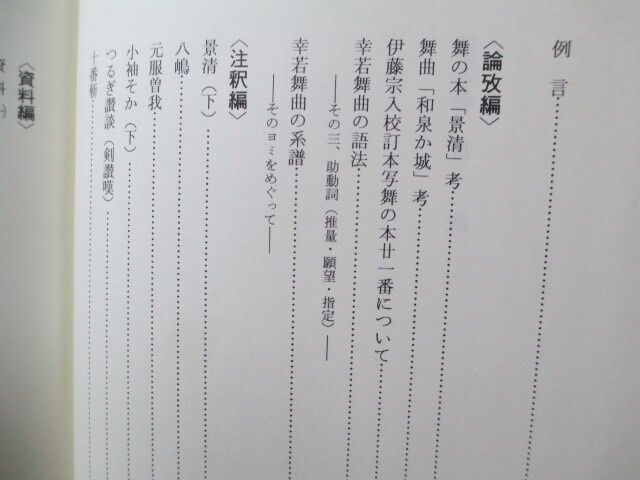 例言
〈論攷編〉
舞の本「景清」考
舞曲「和泉か城」考
伊藤宗入校訂本写舞の本廿一番について
幸若舞曲の語法
――その三、助動詞（推量・願望・指定）――
幸若舞曲の系譜
――そのヨミをめぐって――
〈注釈編〉
景清（下）
八嶋
元服曽我
小袖そか（下）
つるぎ讃談（剣讃嘆）
十番斬
〈資料編〉